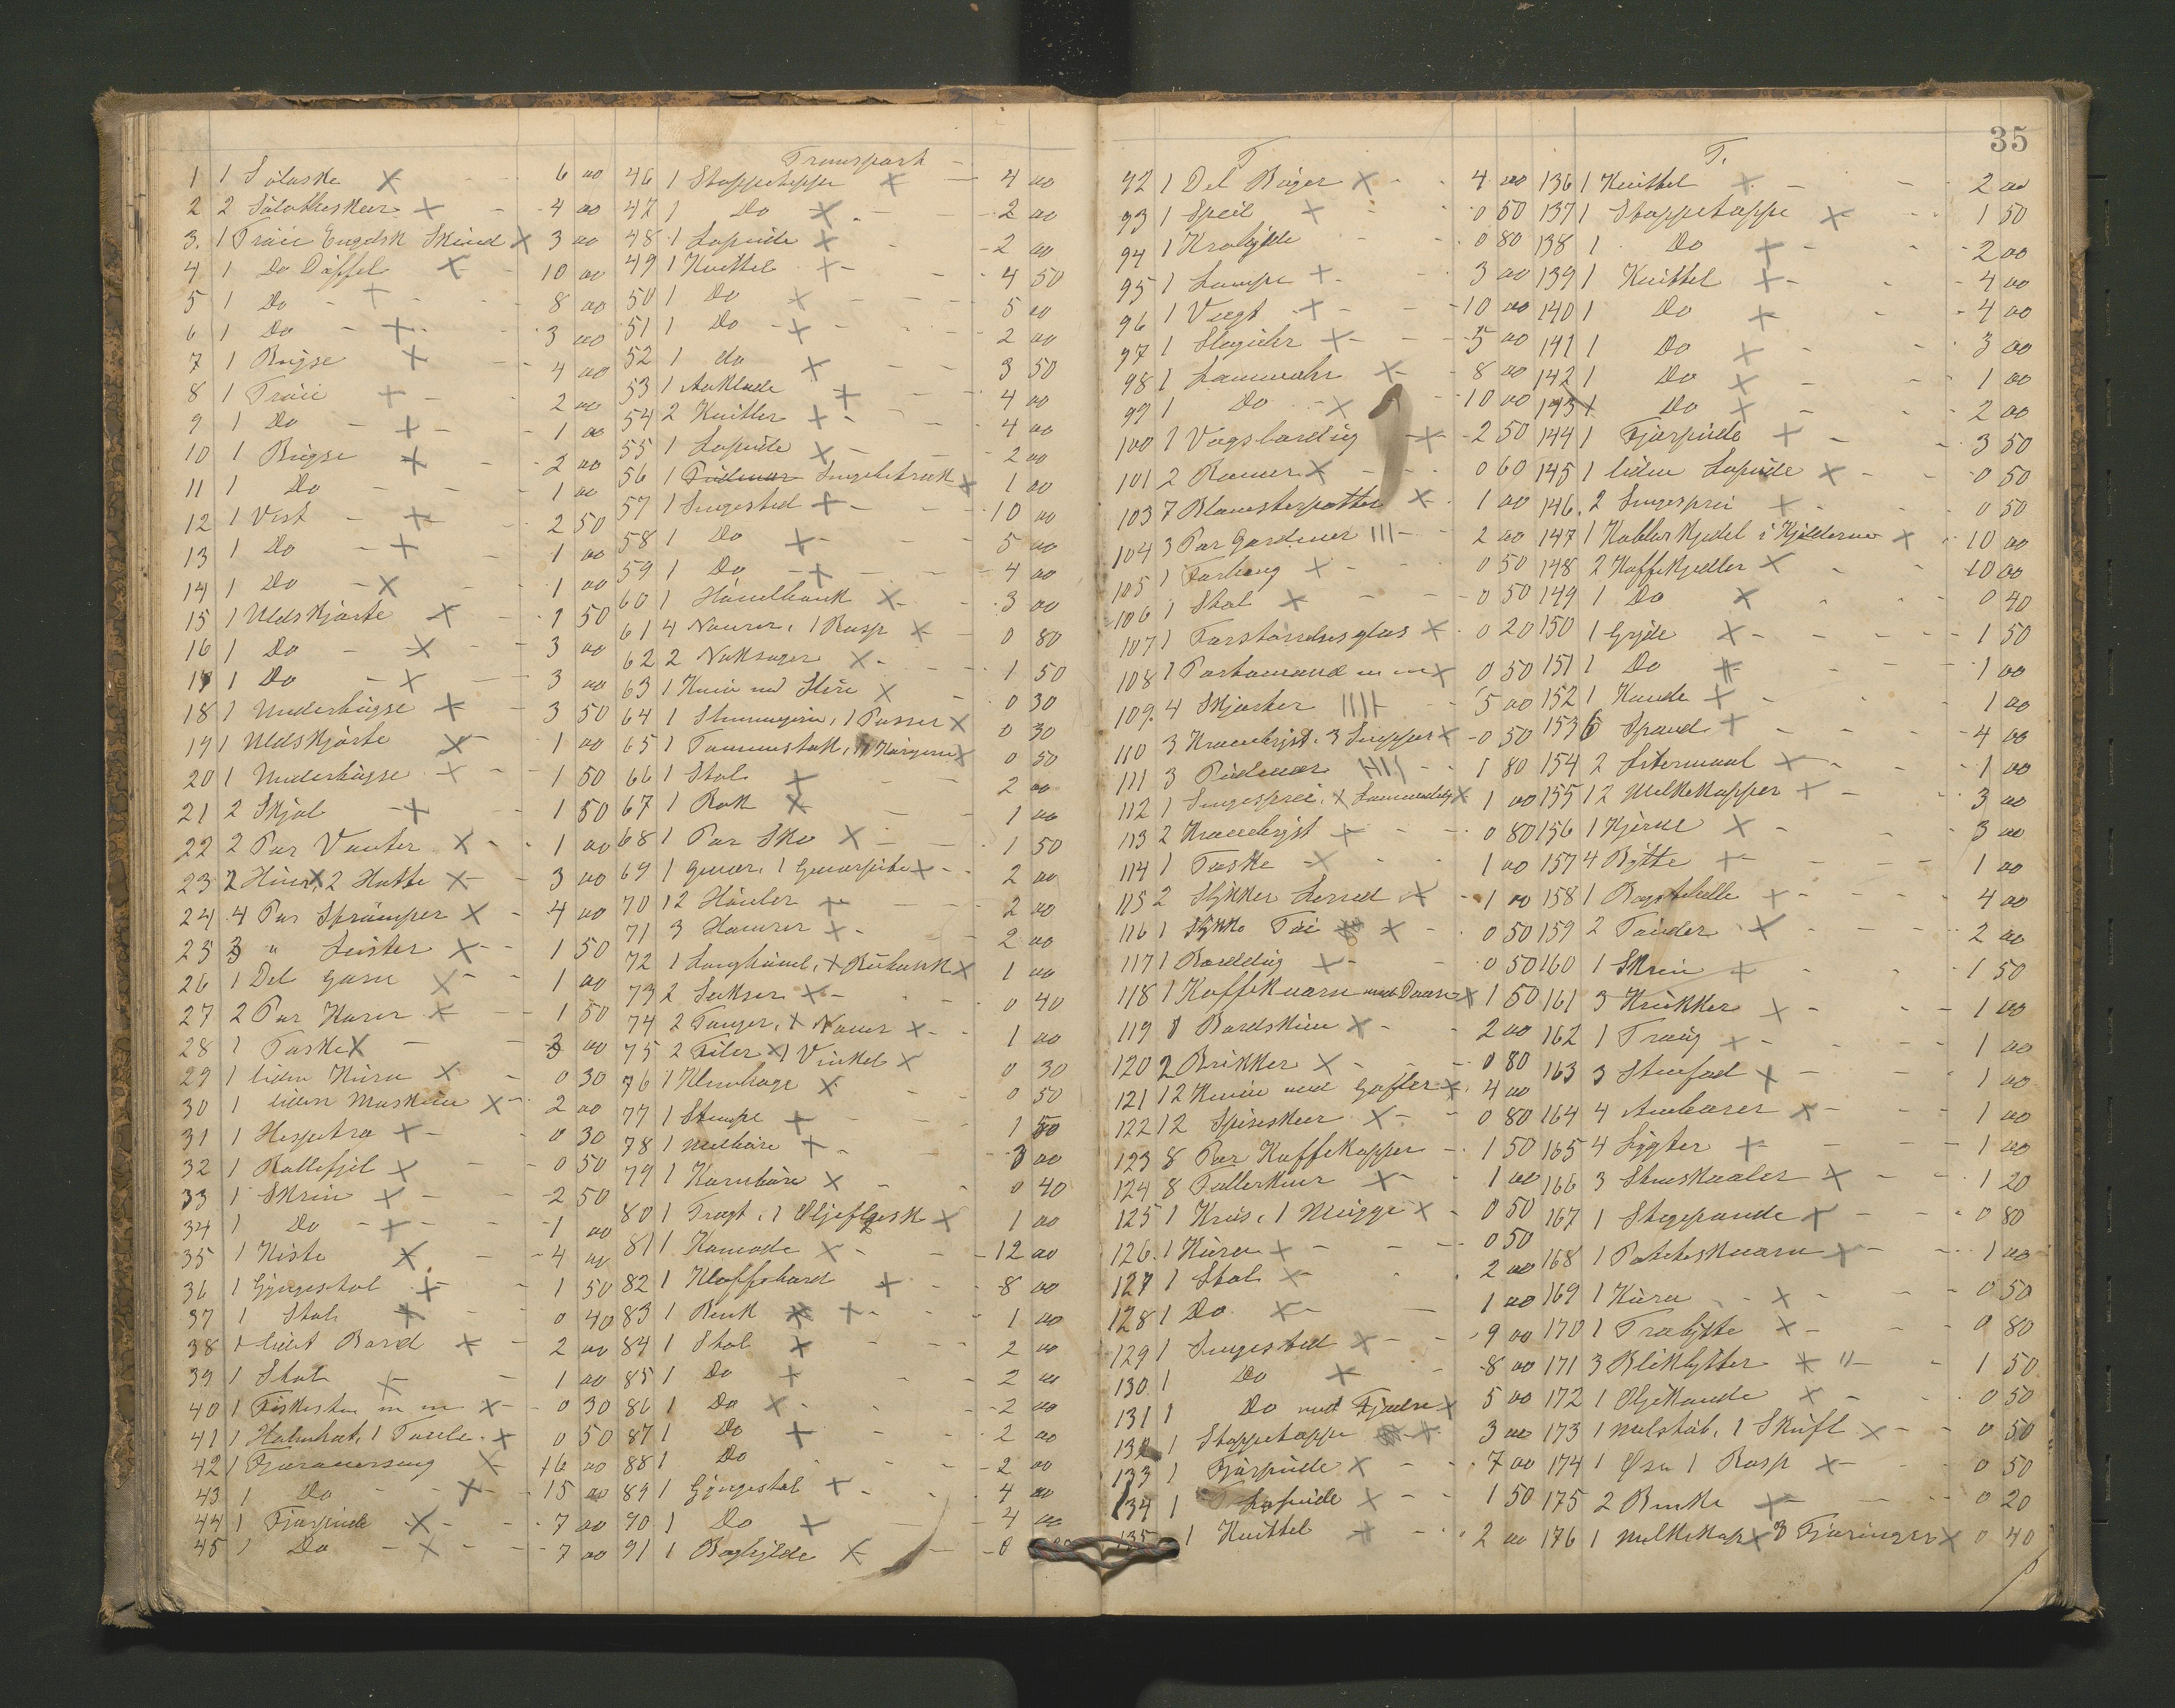 35
1 1 Sölaske 6 00
2 2 Sölvtheskeer 4 00
3. 1 Tröie Engelsk Skind 3 00
4 1 Do Döffel 10 00
5 1 Do 8 00
6 1 Do 3 00
7 1 Bugse 4 00
8 1 Tröie 2 00
9 1 Do 1 00
10 1 Bugse 2 00
11 1 Do 1 00
12 1 Vest 2 50
13 1 Do 1 00
14 1 Do 1 00
15 1 Uldskjorte 1 50
16 1 Do 3 00
17 1 Do 3 00
18 1 Underbugse 3 50
19 1 Uldskjorte 1 00
20 1 Underbugse 1 50
21 2 Skjal 1 50
22 2 Par Vanter 1 00
23 2 Huer, 2 Hatte 3 00
24 4 Par Strömper 4 00
25 3 " Leister 1 50
26 1 Del Garn 1 00
27 2 Par Karer 1 50
28 1 Taske 3 00
29 1 liden Kurv 0 30
30 1 liden Maskine 2 00
31 1 Hespetra 0 30
32 1 Rullefjöl 0 50
33 1 Skrin 2 50
34 1 Do 1 00
35 1 Kiste 4 00
36 1 Gyngestol 1 50
37 1 Stol 0 40
38 1 lidet Bord 2 00
39 1 Stol 1 00
40 1 Fiskesten m m 0 30
41 1 Halmhat, 1 Tavle 0 50
42 1 Fjæraversæng 16 00
43 1 Do 15 00
44 1 Fjærpude 7 00
45 1 Do 7 00
Transport
46 1 Stoppeteppe 4 00
47 1 Do 2 00
48 1 Lapude 2 00
49 1 Kvittel 4 50
50 1 Do 5 00
51 1 Do 2 00
52 1 do 3 50
53 1 Aaklæde 4 00
54 2 Kvitler 4 00
55 1 Lapude 2 00
56 1 Sengebetræk 1 00
57 1 Sengested 10 00
58 1 Do 5 00
59 1 Do 4 00
60 1 Hövelbænk 3 00
61 4 Navrer, 1 Rasp 0 80
62 2 Haksager 1 50
63 1 Kniv med Slire 0 30
64 1 Stemmejern, 1 Passer 0 30
65 1 Tommestok, 1 0 50
66 1 Stol 2 00
67 1 Rok 1 00
68 1 Par Sko 1 50
69 1 Gevær, 1 Geværpibe 2 00
70 12 Hövler 2 00
71 3 Hamrer 2 00
72 1 Langhövel, 1 00
73 2 Sakser 0 40
74 2 Tænger, 1 Naver 1 00
75 2 Filer 1 Vinkel 0 30
76 1 Klemhage 0 50
77 1 Stempe 1 50
78 1 Melbøre 3 00
79 1 Kornböre 0 40
80 1 Tragt, 1 Oljeflaske 1 00
81 1 Komode 12 00
82 1 Klaffebord 8 00
83 1 Benk 1 00
84 1 Stol 2 00
85 1 Do 2 00
86 1 Do 2 00
87 1 Do 2 00
88 1 Do 2 00
89 1 Gyngestol 4 00
90 1 Do 4 00
91 1 Boghylde 0
T
92 1 Del Böger 4 00
93 1 Speil 0 50
94 1 Krohylde 0 80
95 1 Lampe 3 00
96 1 Vægt 10 00
97 1 Slaguhr 5 00
98 1 Lommeuhr 8 00
99 1 Do 10 00
100 1 Voxbordug 2 50
101 2 Ramer 0 60
103 7 Blomsterpotter 1 00
104 3 Par Gardiner 2 00
105 1 Forheng 0 50
106 1 Stol 0 50
107 1 Forstörrelsesglas 0 20
108 1 Portomonna m m 0 50
109. 4 Skjorter 5 00
110 3 Kravebryst, 3 Snipper 0 50
111 3 Pudevar 1 80
112 1 Sengesprei, 1 00
113 2 Kravebryst 0 80
114 1 Taske 1 00
115 2 Stykker Lerred 1 00
116 1 Stykke Töi 0 50
117 1 Borddug 0 50
118 1 Kaffekværn med Daase 1 50
119 1 Bordskive 2 00
120 2 Brikker 0 80
121 12 Knive med Gafler 4 00
122 12 Spiseskeer 0 80
123 8 Par Kaffekopper 1 50
124 8 Tallerkner 1 00
125 1 Krus, 1 Mugge 0 50
126. 1 Kurv 0 50
127 1 Stol 2 00
128 1 Do 1 00
129 1 Sengested 9 00
130 1 Do 8 00
131 1 Do med Fjædre 5 00
132 1 Stoppetæppe 3 00
133 1 Fjærpude 7 00
134 1 Lapude 1 50
135 1 Kvittel 2 00
T.
136 1 Kvittel 2 00
137 1 Stoppetæppe 1 50
138 1 Do 2 00
139 1 Kvittel 4 00
140 1 Do 4 00
141 1 Do 3 00
142 1 Do 1 00
143 1 Do 2 00
144 1 Fjærpude 3 50
145 1 liden Lapude 0 50
146. 2 Sengesprei 0 50
147 1 Kobberkjedel i Kjelderen 10 00
148 2 Kaffekjedler 10 00
149 1 Do 0 40
150 1 Gryde 1 50
151 1 Do 1 00
152 1 Kande 1 00
153 6 Spand 4 00
154 2 Litermaal 1 00
155 12 Melkekopper 3 00
156 1 Kjerne 3 00
157 4 Bötte 1 00
158 1 Bagstehelle 4 00
159 2 Tönder 2 00
160 1 Skrin 1 50
161 3 Krukker 1 00
162 1 Traug 1 00
163 3 Stenfad 1 00
164 4 Ambarer 1 00
165 4 Lygter 1 00
166 3 Stenskaaler 1 20
167 1 Stegepande 0 80
168 1 Poteteskværn 1 00
169 1 Kurv 0 50
170 1 Træbytte 0 80
171 3 Blikbytter 1 50
172 1 Oljekande 0 50
173 1 Melstöb, 1 Skuft 0 50
174 1 Øse 1 Rasp 0 50
175 2 Benke 0 20
176 1 Melkekop 3 Fjæringer 0 40